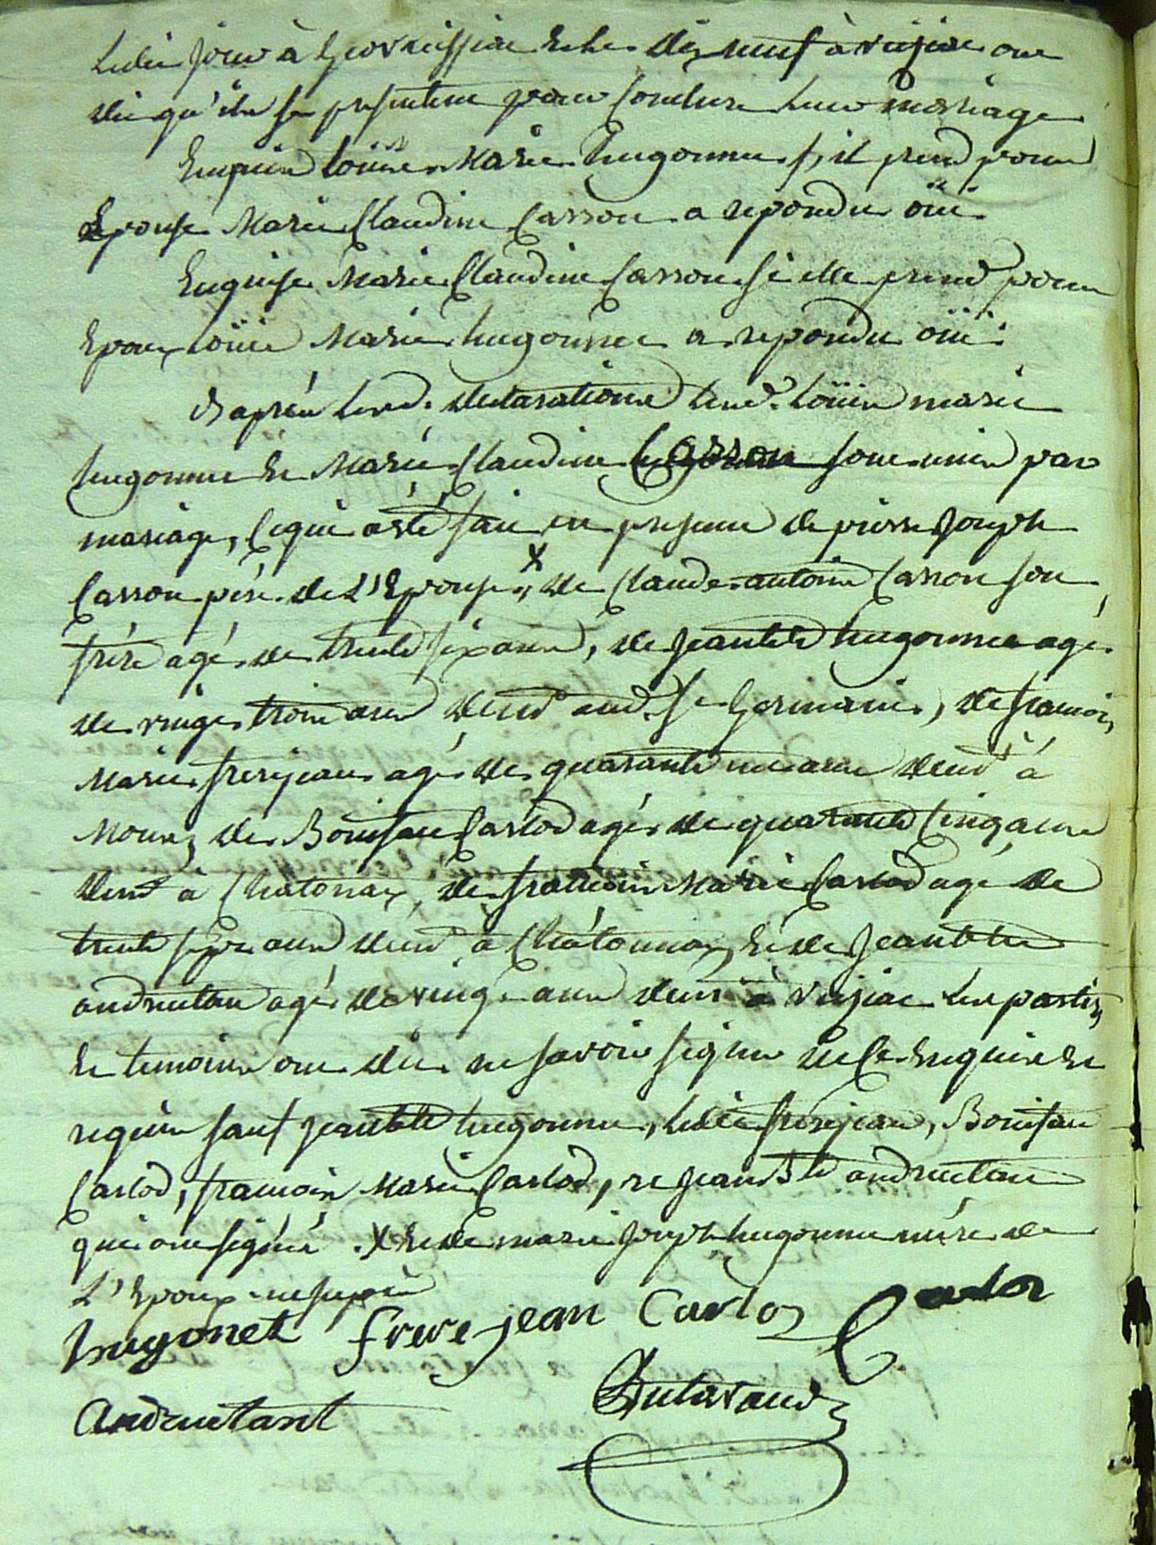 ledit jour à Géovreissiat et le dix neuf à veisiat ont
dit qu'ils se presentent pour conclure leur mariage
Enquis Loüis Marie hugonnet s'il prend pour
Epouse Marie Claudine Carron a repondu oüi
Enquise Marie Claudine Carron si elle prend pour
Epoux Loüis Marie hugonnet a repondu oüi
d'après lesd. declarations lesd. Loüis marie
hugonnet et Marie Claudine Carron sont unis par
mariage, ce qui a été fait en presence de pierre Joseph
Carron pére de L'Epouse, X de Claude antoine Carron son
frére agé de trente six ans, de Jean Bte hugonnet agé
de vingt trois ans dem.t aud. St Germain, de francois
Marie frerejean agé de quarante un ans dem.t à
Mornay de Boniface Carlod agé de quarante Cinq ans
dem.t à Chatonax, de francois Marie Carlod agé de
trente sept ans dem.t à Châtonnax, Et de Jean Bte
andruetan agé de vingt ans dem.t à veisiat Les parties
Et temoins ont dit ne savoir signer de ce Enquis Et
requis sauf Jean Bte hugonnet, ledit frerejean, Boniface
Carlod, francois Marie Carlod, et Jean Bte andruetan
qui ont signé. X Et de marie Joseph hugonnet mére de
L'Epoux
hugonet frerejean Carloz Carlod
andruetant